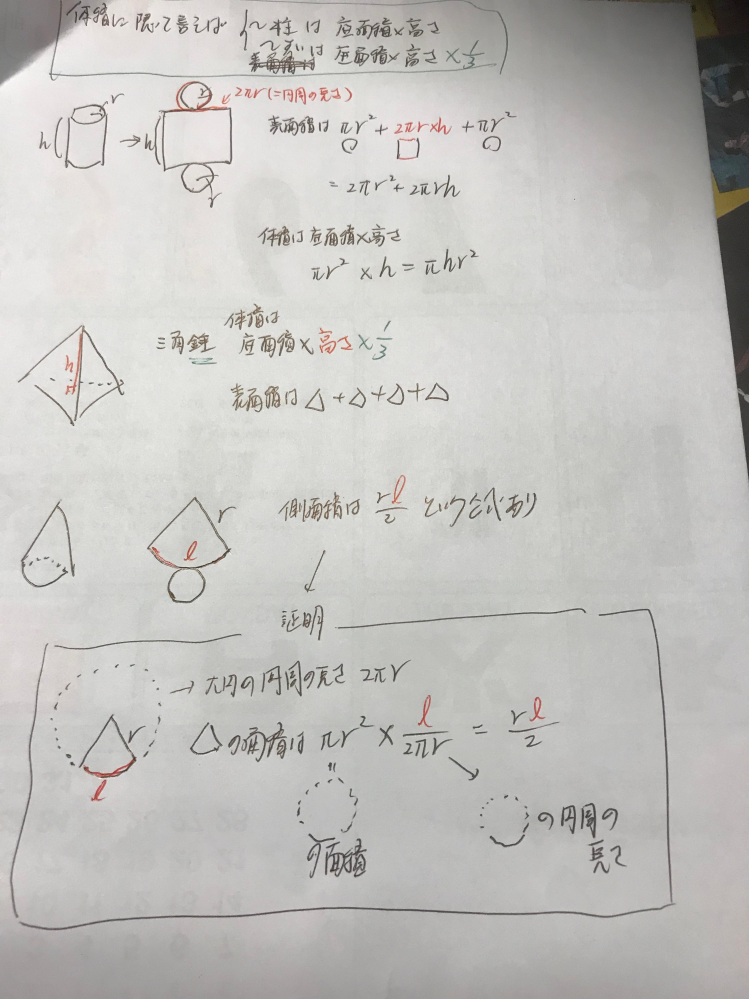 体積に限って言えば
～柱は 底面積×高さ
～すいは 底面積×高さ×1/3
r
h
→
h
r
2πr(=円周の長さ)
r
表面積は πr²+2πr×h+πr²
=2πr²+2πrh
体積は底面積×高さ
πr²×h=πhr²
h
三角錐
体積は
底面積×高さ×1/3
表面積は△+△+△+△
r
l
側面積は rl/2 という公式あり
証明
→大円の円周の長さ 2πr
r
l
の面積は πr²×l/2πr=rl/2
〃
の面積
の円周の
長さ